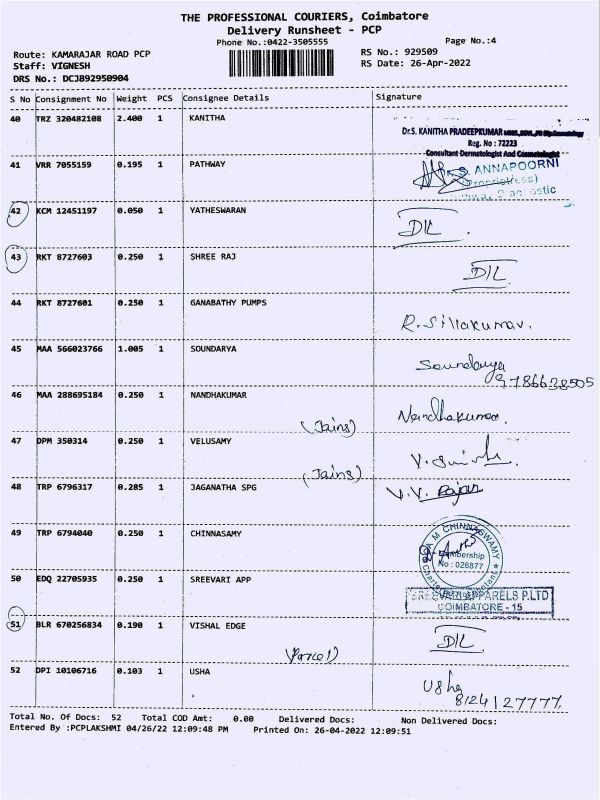 THE PROFESSIONAL COURIERS, Coimbatore
Delivery Runsheet - PCP
Phone No.:0422-3505555
Page No.:4
Route: KAMARAJAR ROAD PCP
RS No.: 929509
Staff: VIGNESH
RS Date: 26-Apr-2022
DRS No.: DCJ892950904
S No Consignment No Weight PCS Consignee Details Signature
40 TRZ 320482108 2.400 1 KANITHA
Dr.S. KANITHA PRADEEPKUMAR
Reg. No : 72223
Consultant Dermatologist And Cosmetologist
41 VRR 7055159 0.195 1 PATHWAY
S. ANNAPOORNI
(Proprietress)
42 KCM 12451197 0.050 1 YATHESWARAN
DIL
43 RKT 8727603 0.250 1 SHREE RAJ
DIL
44 RKT 8727601 0.250 1 GANABATHY PUMPS
45 MAA 566023766 1.005 1 SOUNDARYA
Soundarya
9786638505
46 MAA 288695184 0.250 1 NANDHAKUMAR
(Jains) Nandhakumar
47 DPM 350314 0.250 1 VELUSAMY
(Jains)
48 TRP 6796317 0.285 1 JAGANATHA SPG
V.V. Rajan
49 TRP 6794040 0.250 1 CHINNASAMY
A M CHINNASWAMY
Membership
No : 026877
Chartered Accountant
50 EDQ 22705935 0.250 1 SREEVARI APP
SREEVARI APPARELS P.LTD
COIMBATORE - 15
51 BLR 670256834 0.190 1 VISHAL EDGE
DIL
(Parcel)
52 DPI 10106716 0.103 1 USHA
Usha
8124127777
Total No. Of Docs: 52 Total COD Amt: 0.00 Delivered Docs: Non Delivered Docs:
Entered By :PCPLAKSHMI 04/26/22 12:09:48 PM Printed On: 26-04-2022 12:09:51